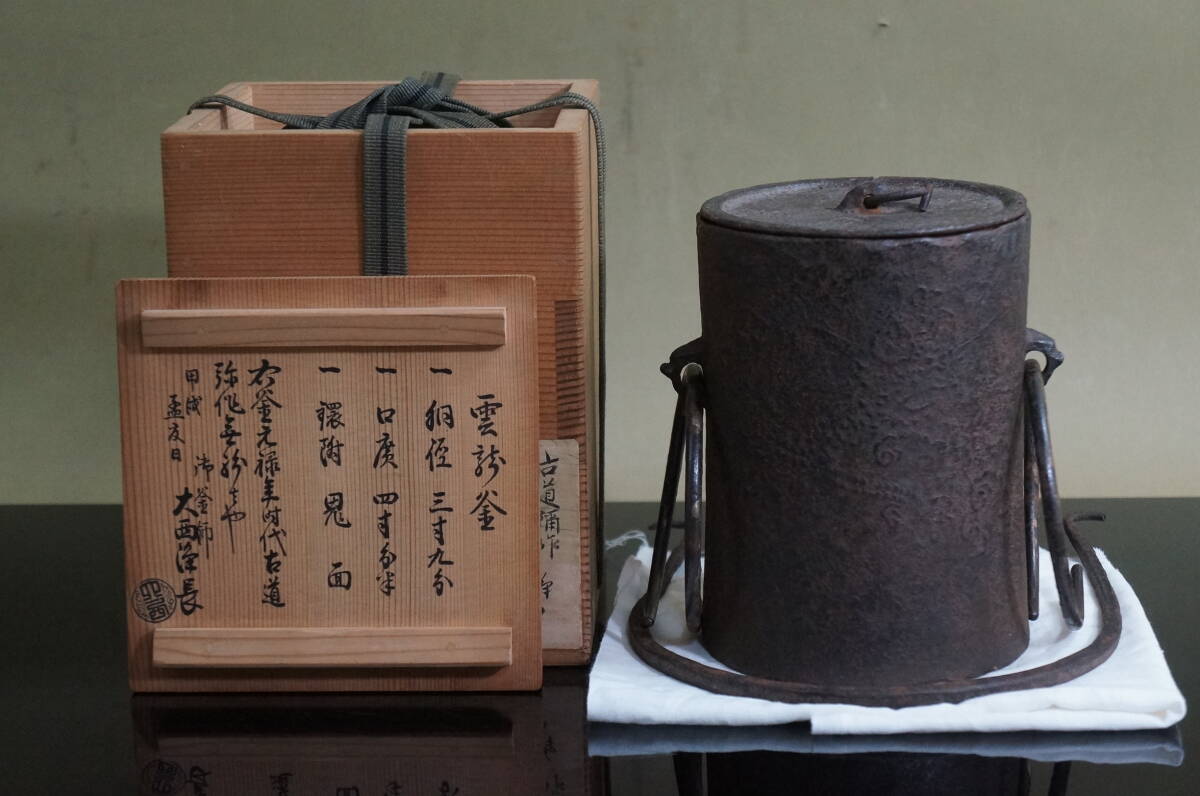 雲龍釜
一 胴径 三寸九分
一 口廣 四寸分半
一 鐶附 鬼面
右釜元禄年時代古道
弥作無紛者也
甲戌 孟夏日
御釜師
大西浄長
古道彌作